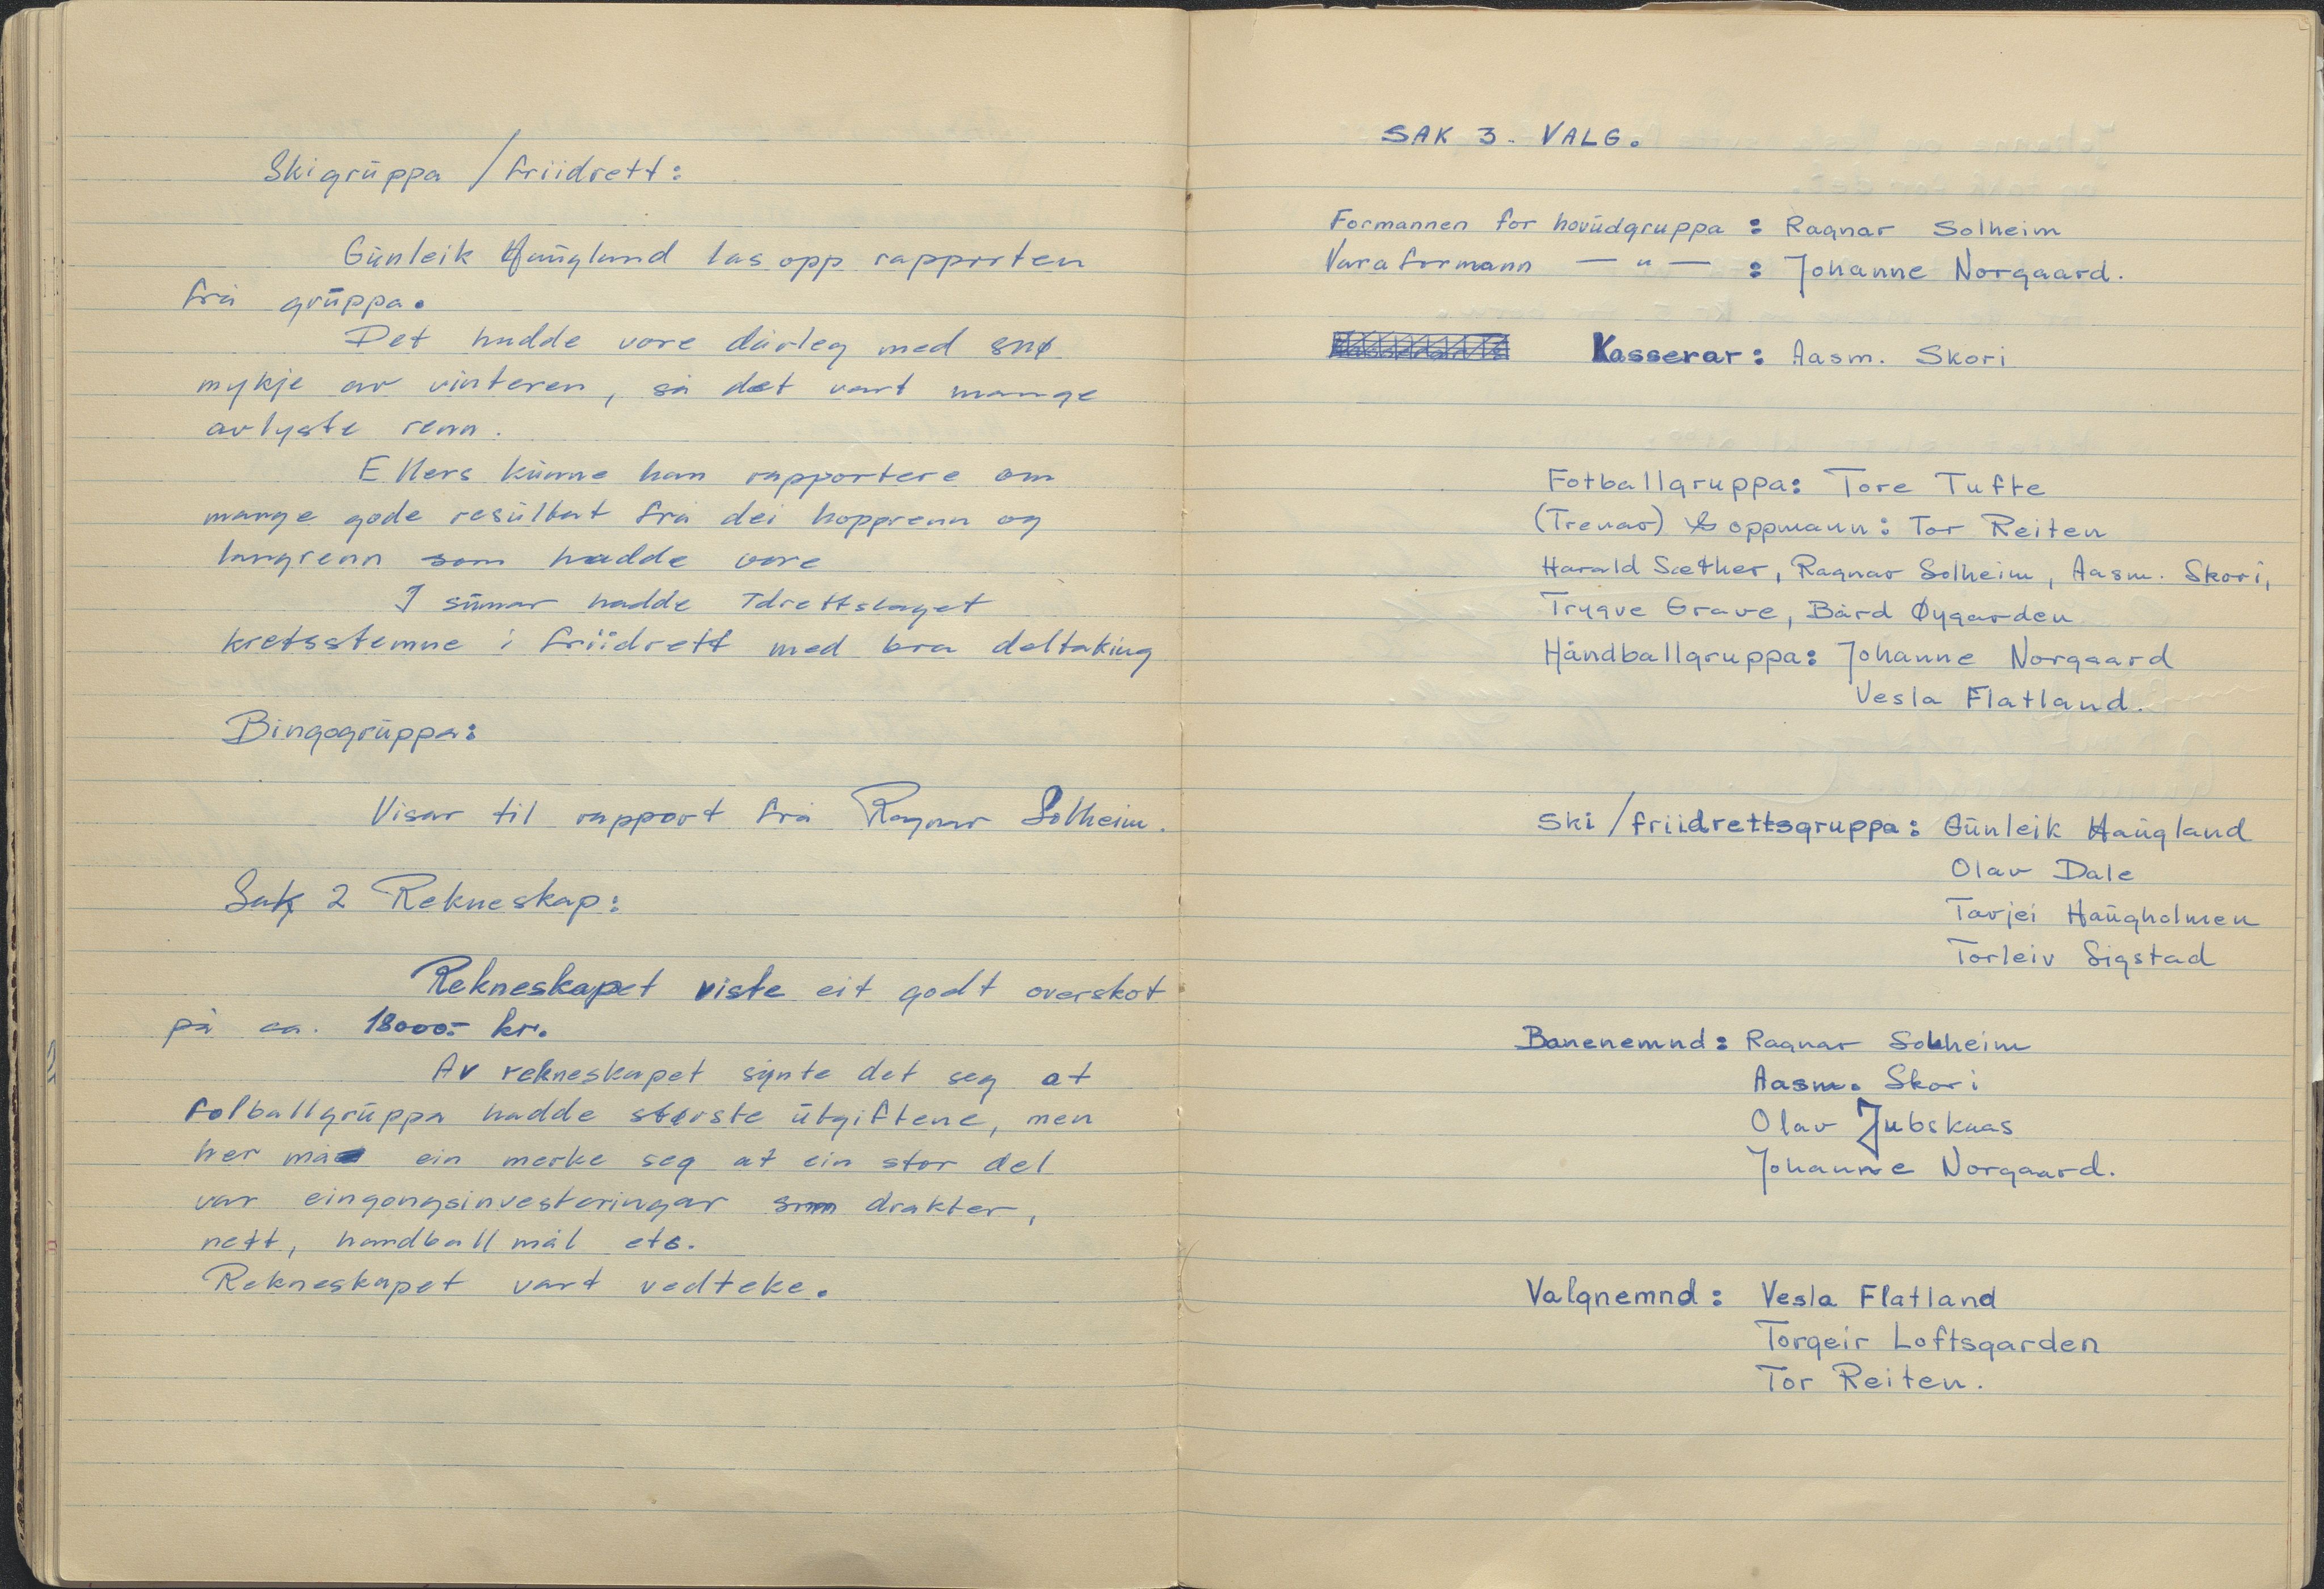 Skigruppa / friidrett:
Gunleik Haugland las opp rapporten
frå gruppa.
Det hadde vore dårleg med snø
mykje av vinteren, så det vart mange
avlyste renn.
Ellers kunne han rapportere om
mange gode resultat frå dei hopprenn og
langrenn som hadde vore
I sumar hadde Idrettslaget
kretsstemne i friidrett med bra deltaking
Bingogruppa:
Visar til rapport frå Ragnar Solheim.
Sak 2 Rekneskap:
Rekneskapet viste eit godt overskot
på ca. 18000.- kr.
Av rekneskapet synte det seg at
fotballgruppa hadde største utgiftene, men
her må ein merke seg at ein stor del
var eingongsinvesteringar som drakter,
nett, handball mål etc.
Rekneskapet vart vedteke.
SAK 3. VALG.
Formannen for hovudgruppa : Ragnar Solheim
Varaformann — " — : Johanne Norgaard.
Kasserar: Aasm. Skori
Fotballgruppa: Tore Tufte
(Trenar) & oppmann: Tor Reiten
Harald Sæther, Ragnar Solheim, Aasm. Skori,
Trygve Grave, Bård Øygarden
Håndballgruppa: Johanne Norgaard
Vesla Flatland.
Ski / friidrettsgruppa: Gunleik Haugland
Olav Dale
Tarjei Haugholmen
Torleiv Sigstad
Banenemnd: Ragnar Solheim
Aasm. Skori
Olav Jubskaas
Johanne Norgaard.
Valgnemnd: Vesla Flatland
Torgeir Loftsgarden
Tor Reiten.